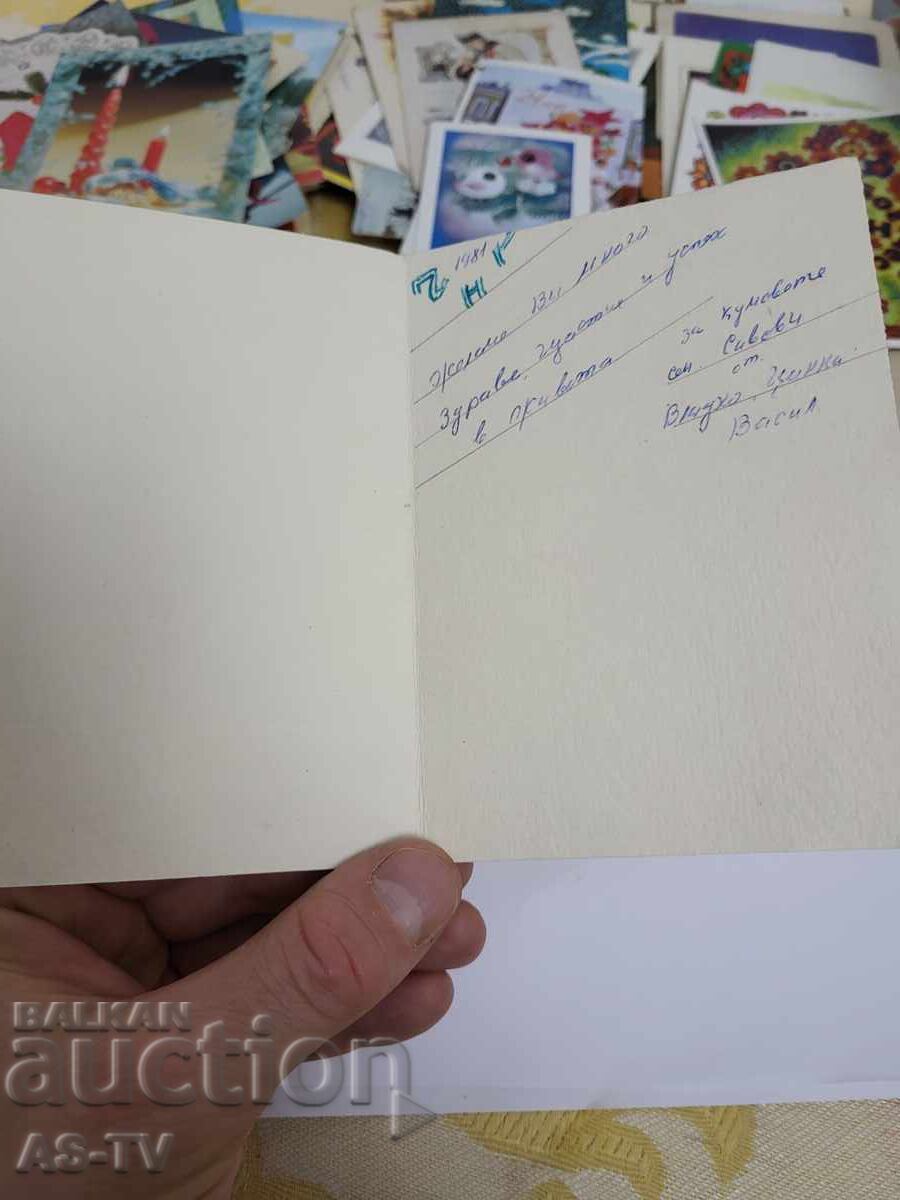 Ч 1981
Н Г
Желая Ви много
Здраве, щастие и успех
в живота
за кумовете
сем. Сивови
от
Владко, Цинка.
Васил.
BALKAN
auction
AS-TV